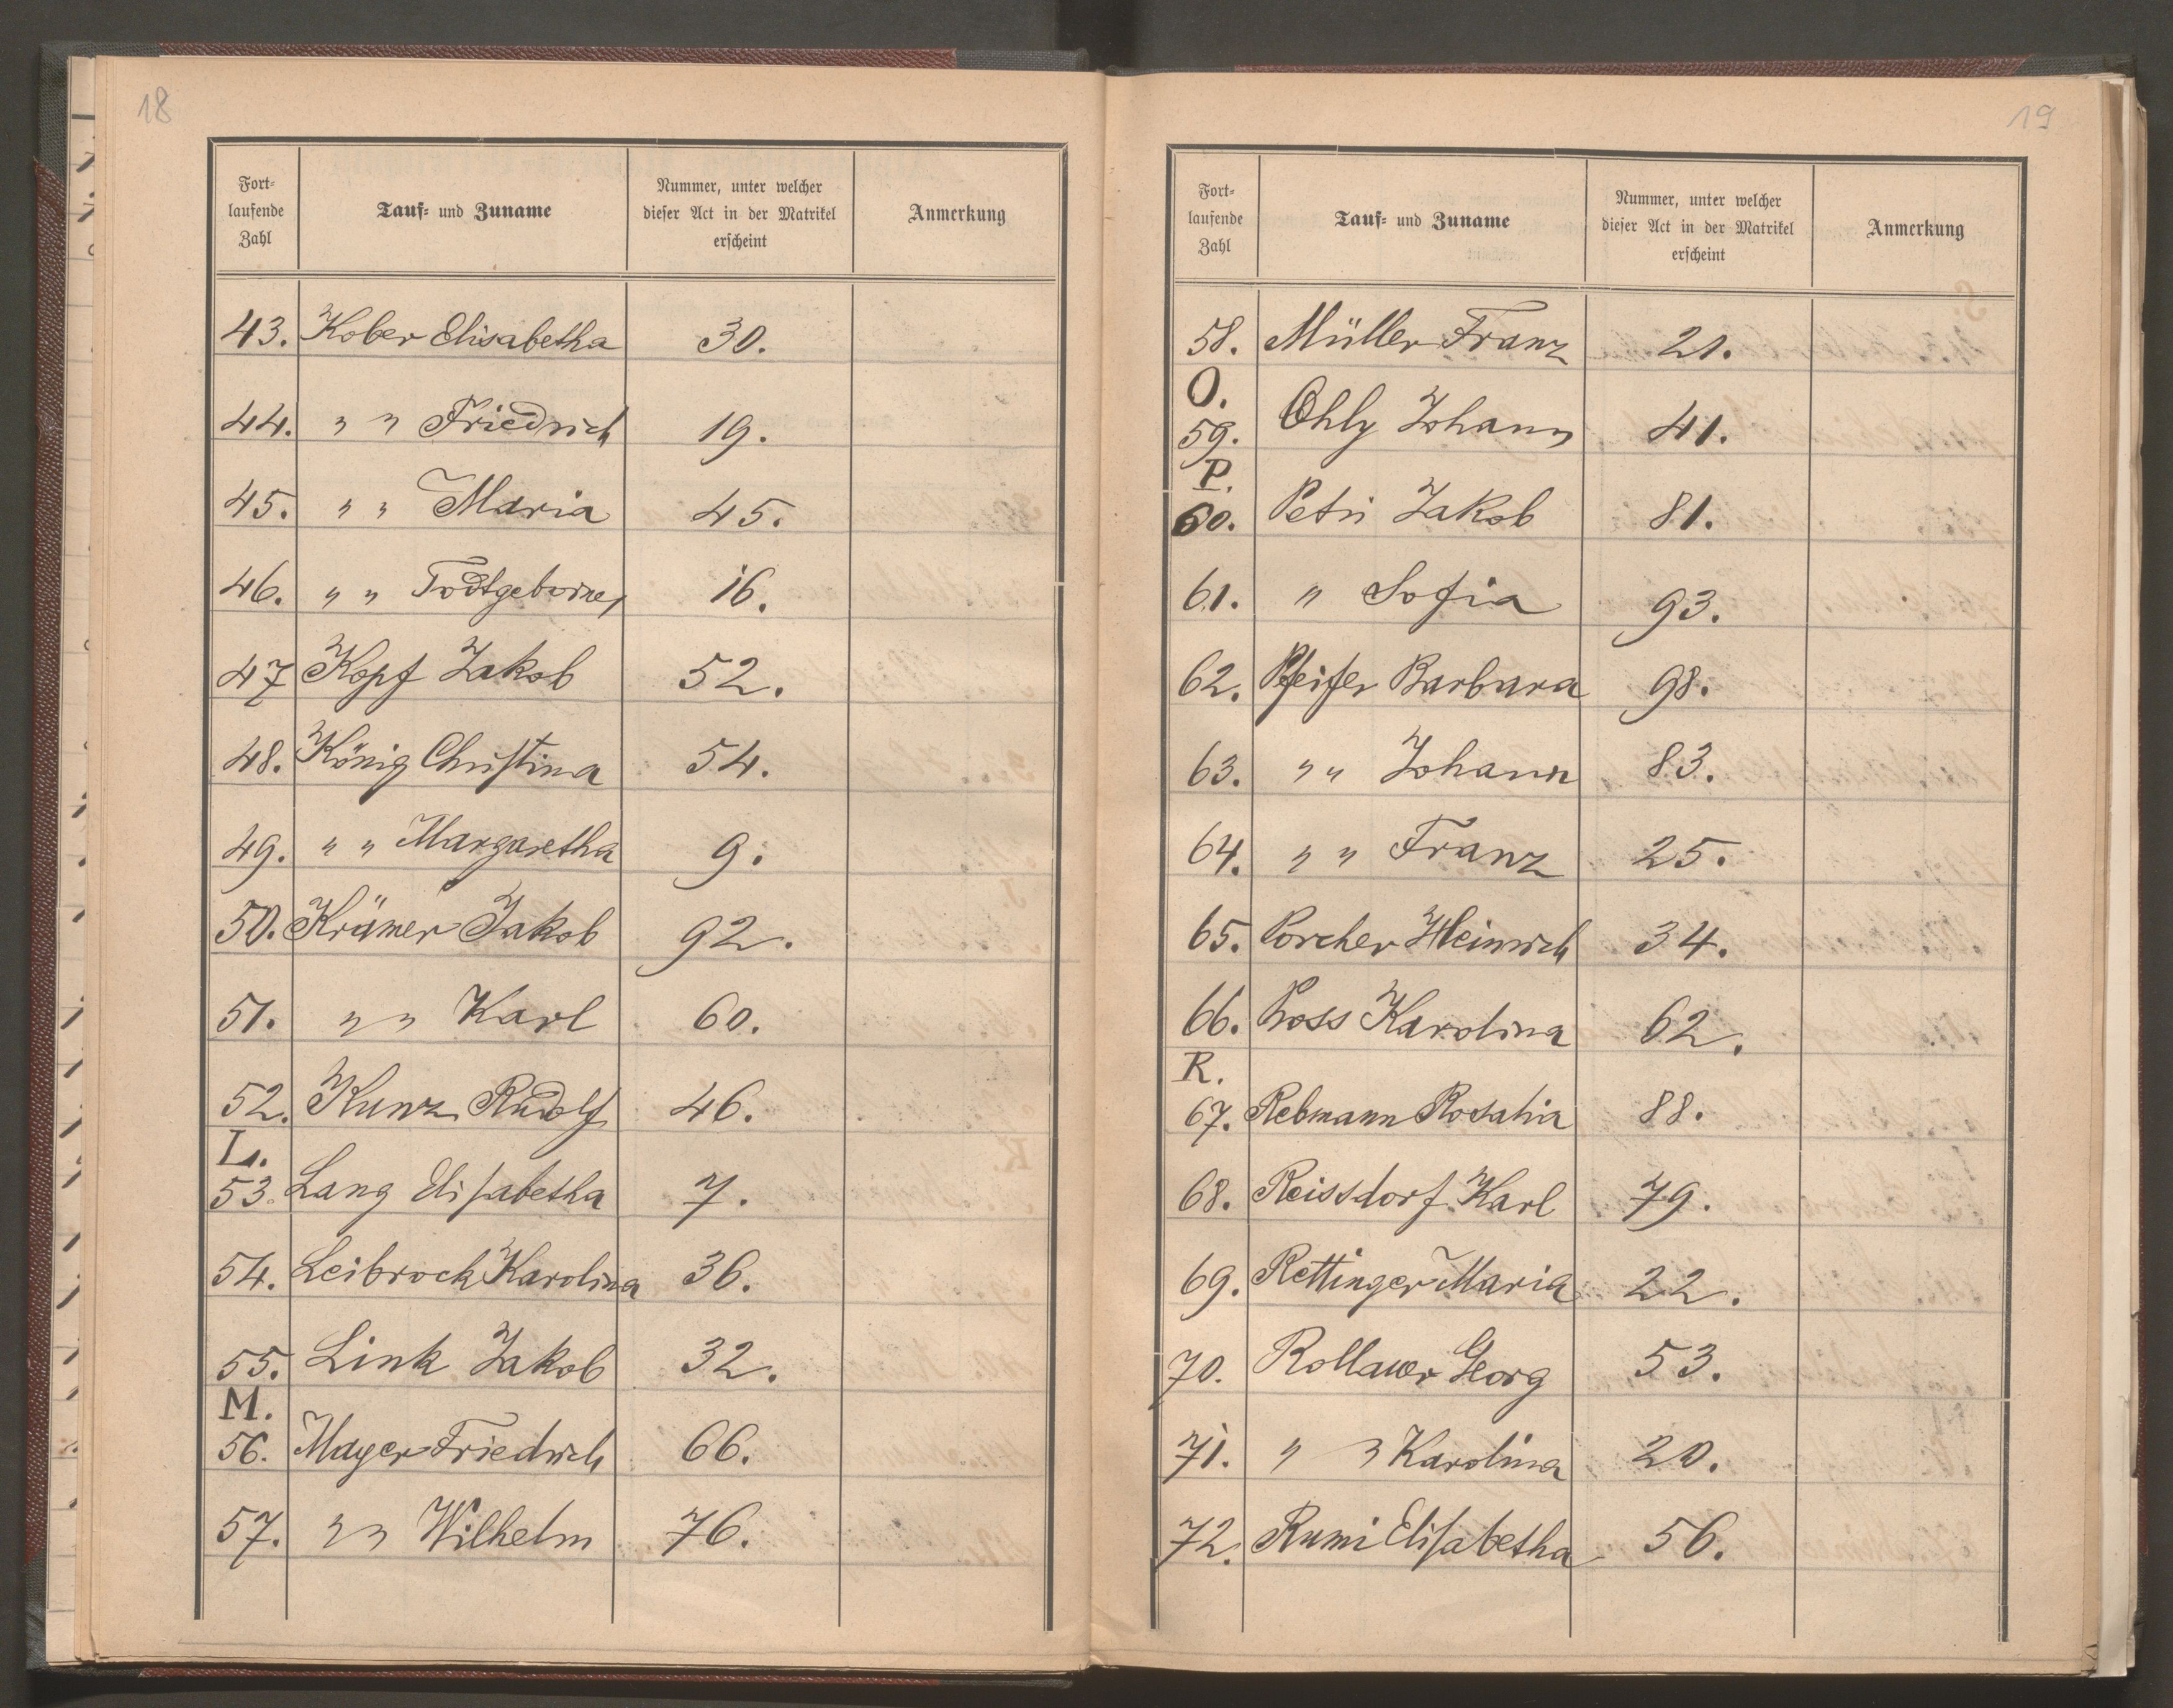 18
Fort-
laufende
Zahl
Tauf- und Zuname
Nummer, unter welcher
dieser Act in der Matrikel
erscheint
Anmerkung
43. Kober Elisabetha 30.
44. " " Friedrich 19.
45. " " Maria 45.
46. " " Todtgeborne 16.
47 Kopf Jakob 52.
48. König Christina 54.
49. " " Margaretha 9.
50. Krämer Jakob 92.
51. " " Karl 60.
52. Kunz Rudolf 46.
L.
53. Lang Elisabetha 7.
54. Leibrock Karolina 36.
55. Link Jakob 32.
M.
56. Mayer Friedrich 66.
57. " " Wilhelm 76.
19
Fort-
laufende
Zahl
Tauf- und Zuname
Nummer, unter welcher
dieser Act in der Matrikel
erscheint
Anmerkung
58. Müller Franz 21.
O.
59. Ohly Johann 41.
P.
60. Petri Jakob 81.
61. " Sofia 93.
62. Pfeifer Barbara 98.
63. " " Johann 83.
64. " " Franz 25.
65. Porcher Heinrich 34.
66. Poss Karolina 62.
R.
67. Rebmann Rosalia 88.
68. Reissdorf Karl 79.
69. Rettinger Maria 22.
70. Rollauer Georg 53.
71. " " Karolina 20.
72. Rumi Elisabetha 56.